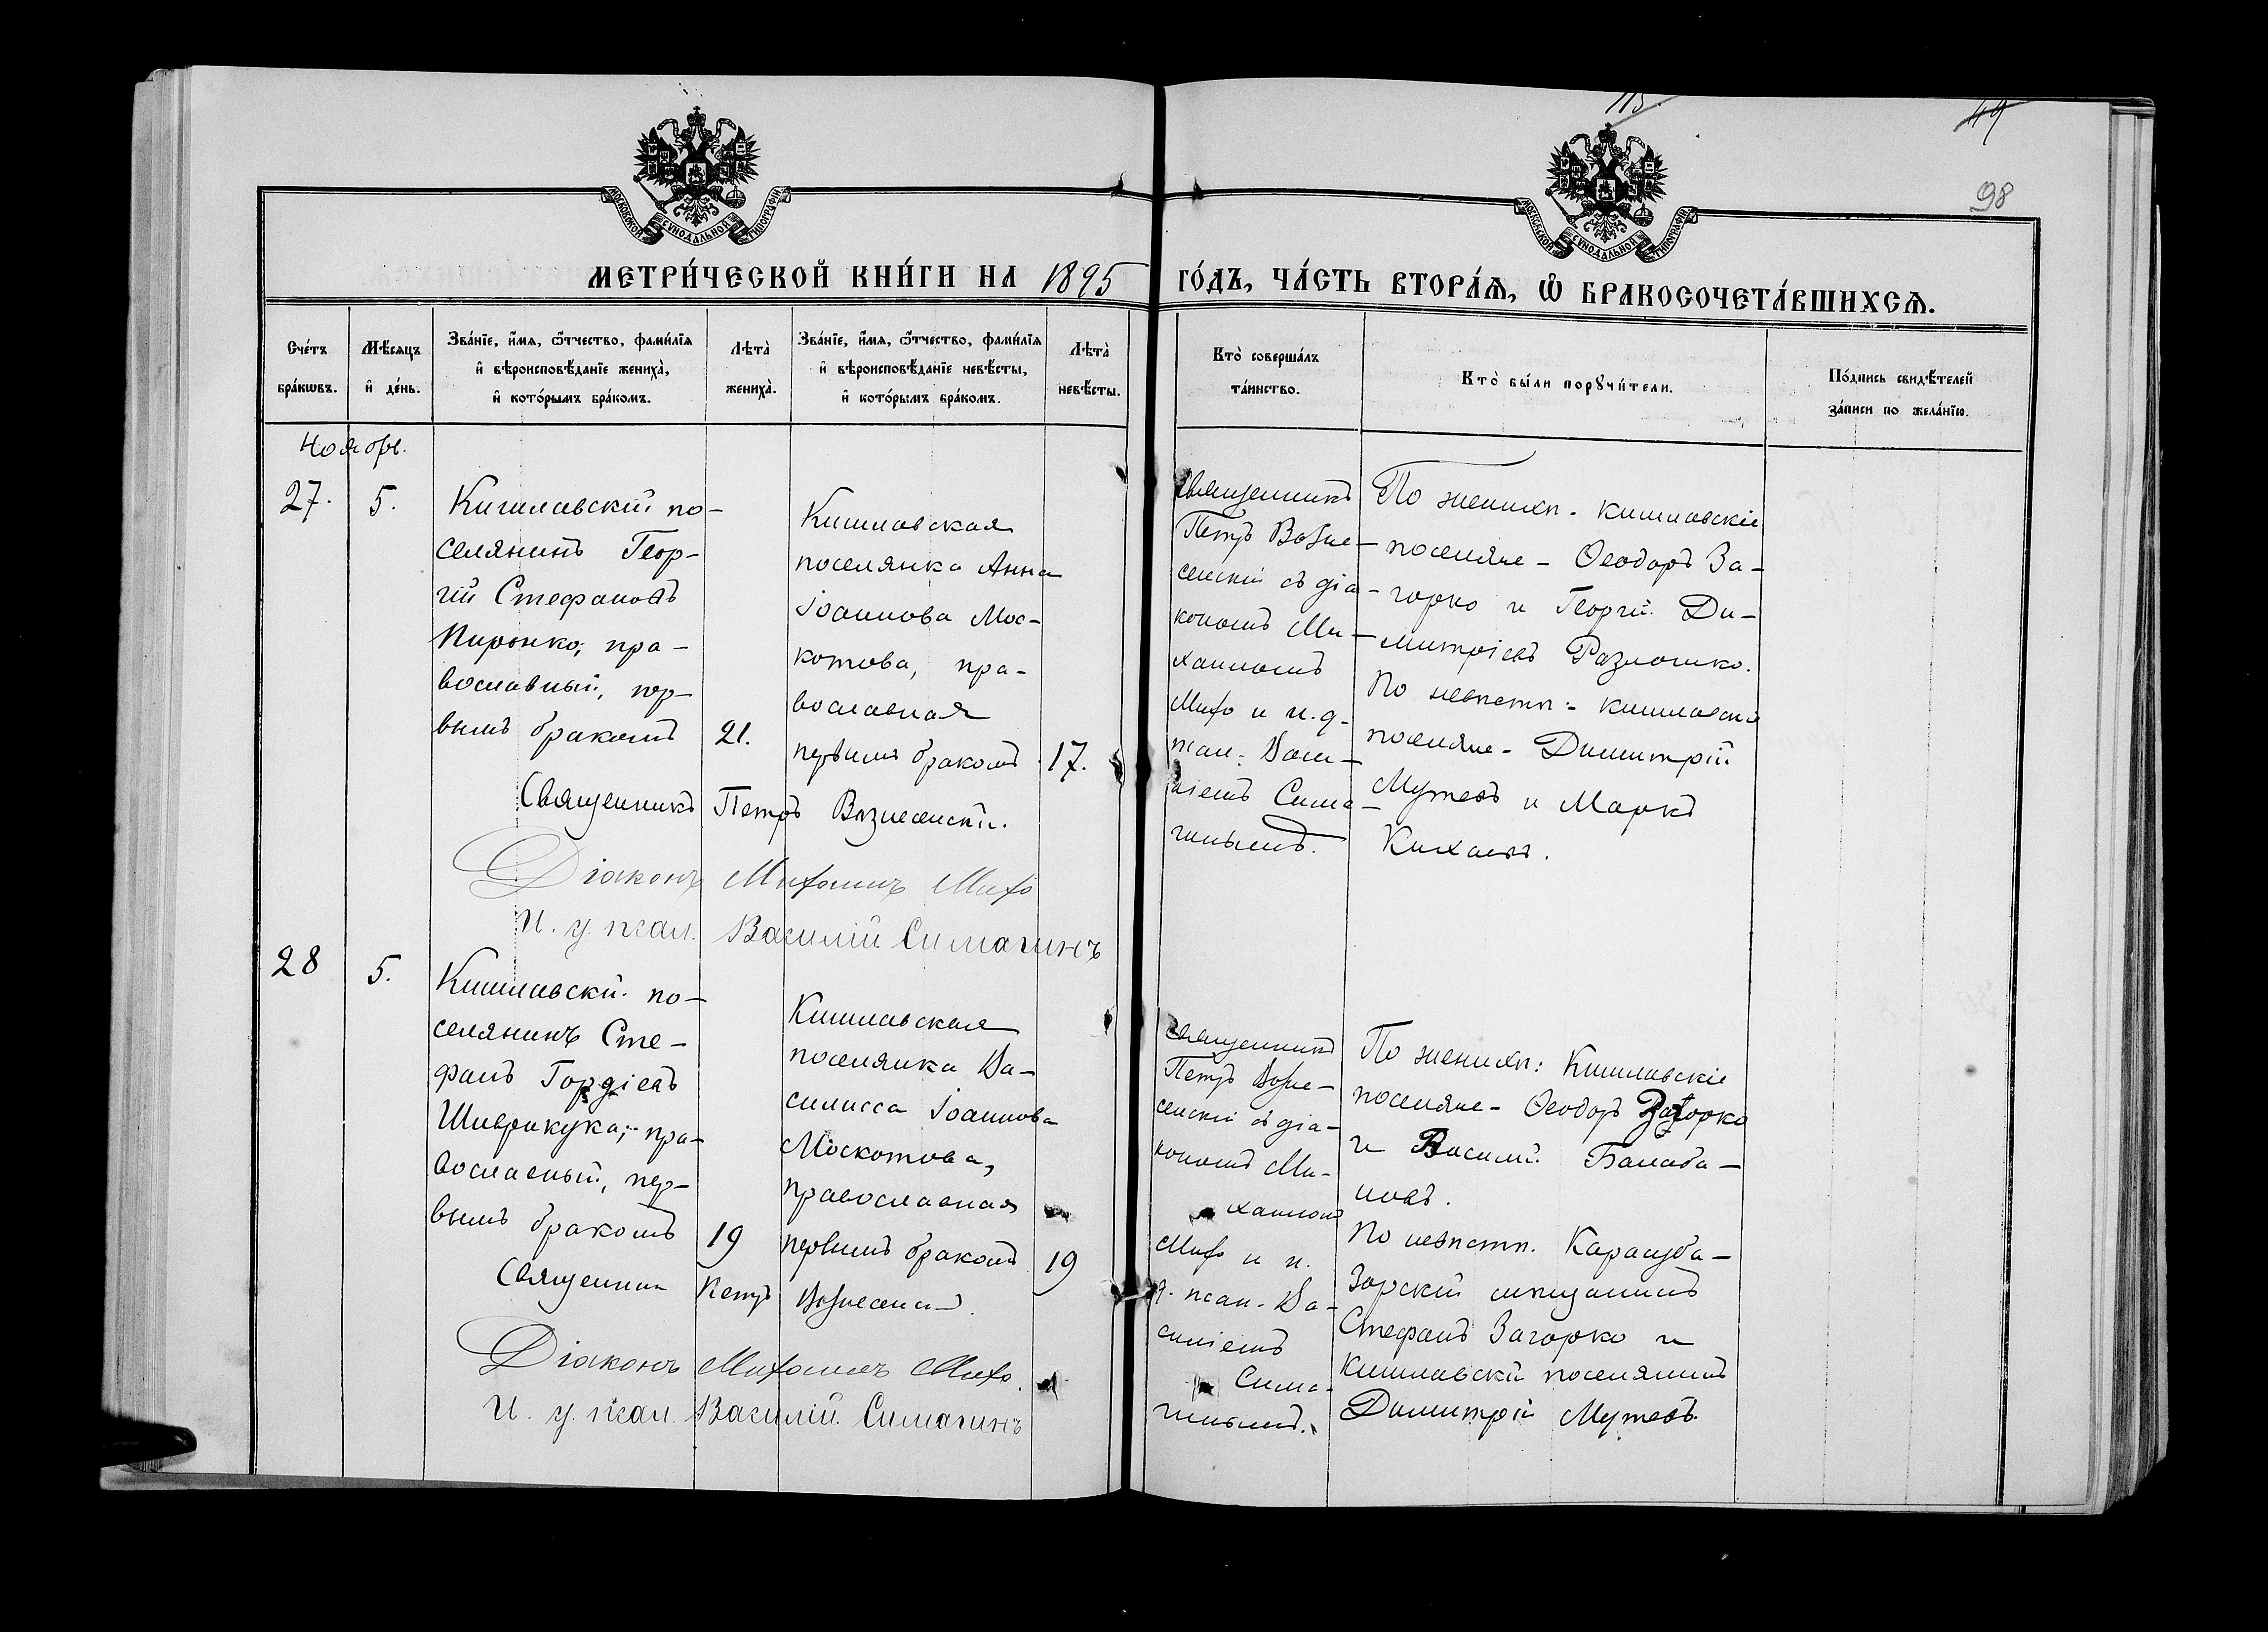 115.
49
98
МОСКОВСКОЙ СУНОДАЛЬНОЙ ТИПОГРАФІИ
МОСКОВСКОЙ СУНОДАЛЬНОЙ ТИПОГРАФІИ
МЕТРИ́ЧЕСКОЙ КНИ́ГИ НА 1895 ГО́ДЪ, ЧА́СТЬ ВТОРА́Ѧ, Ѡ҆ БРАКОСОЧЕТА́ВШИХСѦ.
Сче́тъ
бра́кѡвъ.
Мѣ́сяцъ
и҆ де́нь.
Зва́нїе, и҆́мя, ѻ҆́тчество, фами́лїя
и҆ вѣроисповѣ́данїе жениха̀,
и҆ кото́рымъ бра́комъ.
Лѣта̀
жениха̀.
Зва́нїе, и҆́мя, ѻ҆́тчество, фами́лїя
и҆ вѣроисповѣ́данїе невѣ́сты,
и҆ кото́рымъ бра́комъ.
Лѣта̀
невѣ́сты.
Кто̀ соверша́лъ
та́инство.
Кто̀ бы́ли порꙋчи́тели.
По́дпись свидѣ́телей
за́писи по жела́нїю.
Ноябрь.
27.
5.
Кишлавскій по-
селянинъ Геор-
гій Стефановъ
Пиронко, пра-
вославный, пер-
вымъ бракомъ
21.
Кишлавская
поселянка Анна
Іоаннова Мос-
котова, пра-
вославная
первымъ бракомъ
17.
Священникъ
Петръ Возне-
сенскій съ діа-
кономъ Ми-
хаиломъ
Михо и и. д.
псал. Васи-
ліемъ Сима-
гинымъ.
По женихѣ - кишлавскіе
поселяне - Ѳеодоръ За-
горко и Георгій Ди-
митріевъ Разношко.
По невѣстѣ - кишлавскіе
поселяне - Димитрій
Мутевъ и Маркъ
Кихаевъ.
Священникъ Петръ Вознесенскій.
Діаконъ Михаилъ Михо
И. д. псал. Василій Симагинъ
28
5.
Кишлавскій по-
селянинъ Сте-
фанъ Гордіевъ
Шиврикука, пра-
вославный, пер-
вымъ бракомъ
19
Кишлавская
поселянка Ва-
силисса Іоаннова
Москотова,
православная
первымъ бракомъ
19
Священникъ
Петръ Возне-
сенскій съ діа-
кономъ Ми-
хаиломъ
Михо и и.
д. псал. Ва-
силіемъ
Сима-
гинымъ.
По женихѣ: Кишлавскіе
поселяне - Ѳеодоръ Загорко
и Василій Балаба-
новъ.
По невѣстѣ. Карасуба-
зарскій мѣщанинъ
Стефанъ Загорко и
Кишлавскій поселянинъ
Димитрій Мутевъ.
Священникъ Петръ Вознесенскій.
Діаконъ Михаилъ Михо.
И. д. псал. Василій Симагинъ